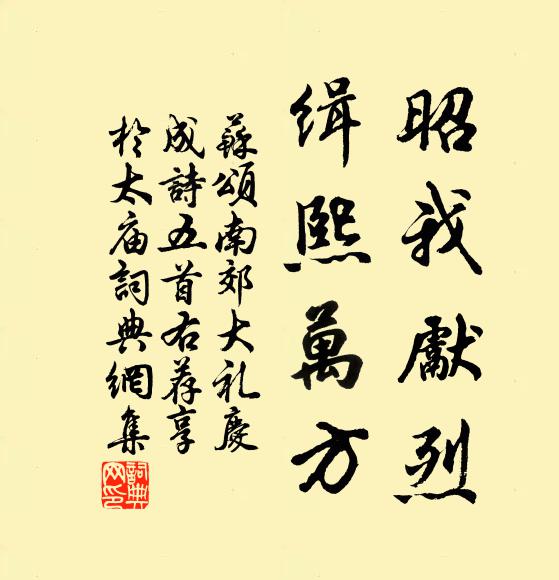 昭我獻烈
缉熙萬方
蘇頌南郊大礼慶
成詩五首右荐享
於太庙詞典網集
詞典
网印